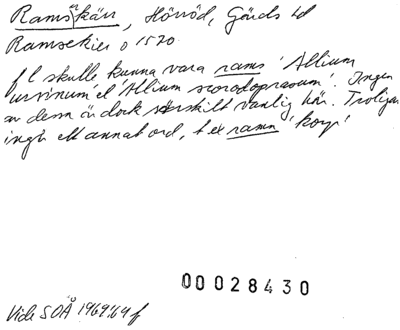 Ramskärr, Hörröd, Gärds hd
Ramsekier o 1520
f l skulle kunna vara rams 'Allium
ursinum' el 'Allium scorodoprasum'. Ingen
av dem är dock särskilt vanlig här. Troligen
ingår ett annat ord, t ex ramn 'korp'
00028430
Vide SOÅ 1969:69 f